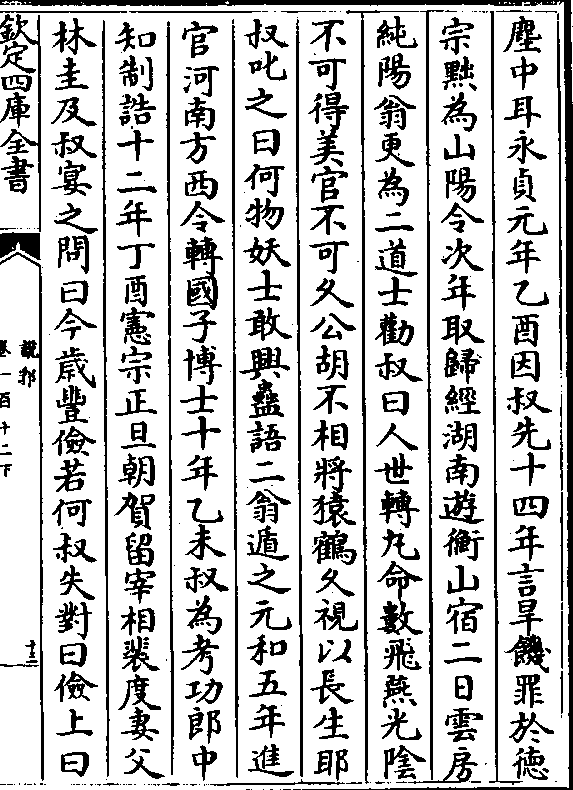 塵中耳永貞元年乙酉因叔先十四年言旱饑罪於徳
宗黜為山陽令次年取歸經湖南遊衡山宿二日雲房
純陽翁更為二道士勸叔曰人世轉丸命數飛燕光陰
不可得美官不可久公胡不相將猿鶴久視以長生耶
叔叱之曰何物妖士敢興蠱語二翁遁之元和五年進
官河南方西令轉國子博士十年乙未叔為考功郎中
知制誥十二年丁酉憲宗正旦朝賀留宰相裴度妻父
林圭及叔宴之問曰今歲豐儉若何叔失對曰儉上曰
欽定四庫全書
說郛
卷一百十二下
十三